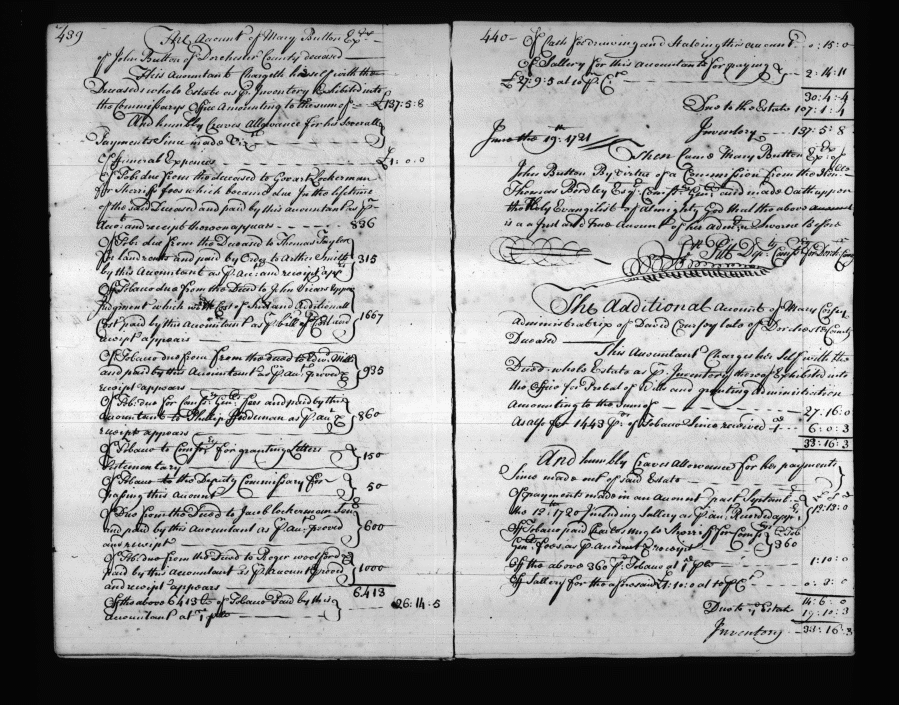 439
The Account of Mary Button Exrx
of John Button of Dorchester County deceased
This Accountant Chargeth herself with the
Deceaseds whole Estate as p. Inventory Exhibited into
the Commissarys Office Amounting to the sum of £137:5:8
And humbly Craves Allowance for her Severall
Payments Since made Vizt
Of funerall Expences £1:0:0
Of Tobo due from the deceased to Govart Lockerman
for Sherriffs fees which became due In the lifetime
of the said Deceased and paid by this accountant as p
Acco: and receipt thereon appears 836
Of Tobo due from the Deceased to Thomas Taylor
for land rents and paid by Order to Arthur Smith
by this Accountant as p. Acc: and receipt app 315
Of Tobacco due from the Deceased to John Vicars Upper
Judgment which with Cost of Suit and Additionall
Cost paid by this Accountant as p. bill of Cost and 1667
receipt appears
Of Tobacco due from from the decd to Edw.
and paid by this Accountant as p. Acct proved & 935
receipt appears
Of Tobo due for Comsy Genl fees and paid by this
Accountant to Phillip Feddeman as p. acct & 860
receipt appears
Of Tobacco to Comsry for granting Letters
testimentary 150
Of Tobacco to the Deputy Commissary for
passing this Account 50
Of Due from the Decd to Jacob Lockermann Senr
and paid by this Accountant as p. Acct proved 600
and receipt
Of Tobo due from the Decd to Roger Woolford &
paid by this Accountant as p. Account proved 1000
and receipt appears
6413
Of the above 6413 lb of Tobacco Paid by this
Accountant at 1d p lb 26:14:5
440
Of Cash for drawing and Stateing this account 0:15:0
Of Sallery for this Accountants for paying
£27:9:5 at 10 p. Ct 2:14:11
30:4:4
Due to the Estate 107:1:4
Inventory 137:5:8
June the 19th 1721
Then Came Mary Button Exx of
John Button By Virtue of a Commission from the Honble
Thomas Bordley Esqr. Comsry Genl and made Oath upon
the Holy Evangelist of Almighty God that the above account
is a Just and True Account of her admn Sworne Before
Pitt Dep. Comsry for Dorchr County
The Additional Account of Mary Coursey
Administratrix of David Coursey late of Dorchester County
Deceased
This Accountant Charges her Self with the
Decds whole Estate as p. Inventory thereof Exhibited into
the Office for Probat of Wills and granting administration
Amounting to the sum of 27:16:0
As also for 1443 lb of Tobacco Since received 6:0:3
33:16:3
And humbly Craves Allowance for her payments
Since made out of said Estate
Of payments made in an Account past Septembr
the 12th 1720 Including Sallery as p. acct Recorded appr 12:13:0
Of Tobacco paid Charles Sherriff for Comsry
Genl fees as p. Account & receipt 360
Of the above 360 lb Tobacco at 1d p lb 1:10:0
Of Sallery for the aforesaid 1:10:0 at 10 p Ct 0:3:0
14:6:0
Due to ye Estate 19:10:3
Inventory 33:16:3